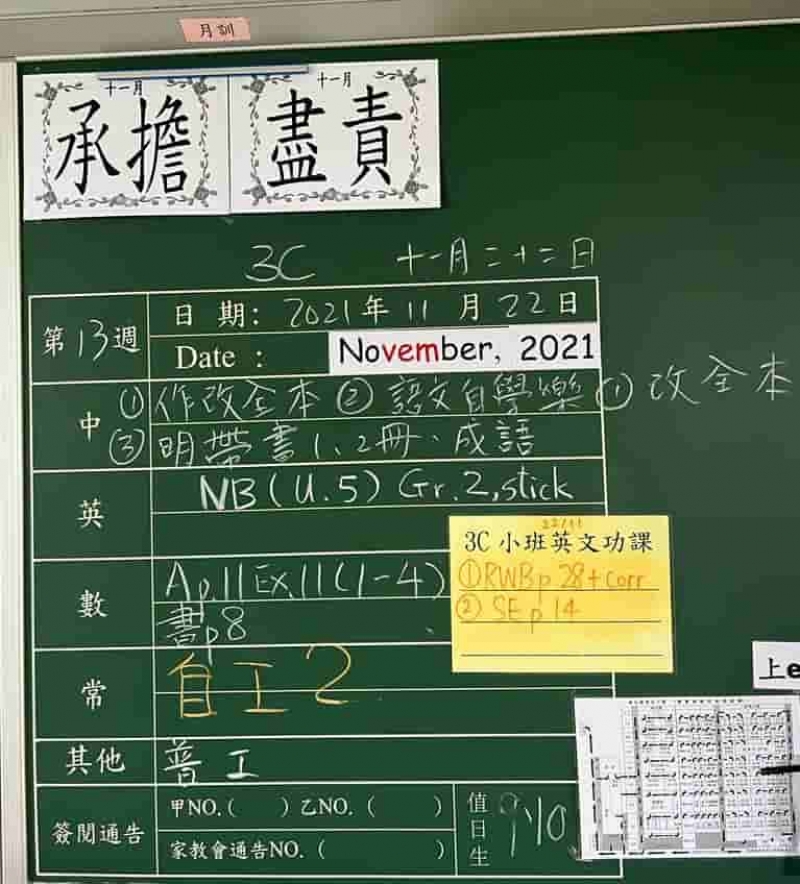 月訓
十一月 十一月
承擔 盡責
3C 十一月二十二日
第13週 日期: 2021年11月22日
Date : November, 2021
中 ①作改全本 ② 語文自學樂 ① 改全本
③ 明帶書1、2冊、成語
英 NB(U.5) Gr.2,stick
22/11
3C 小班英文功課
①RWBp 28+corr
② SE p 14
數 Ap11Ex11(1-4)
書p8
常 自工2
上e
其他 普工
簽閱通告 甲NO.( ) 乙NO. ( )
家教會通告NO. ( )
值日生 9、10